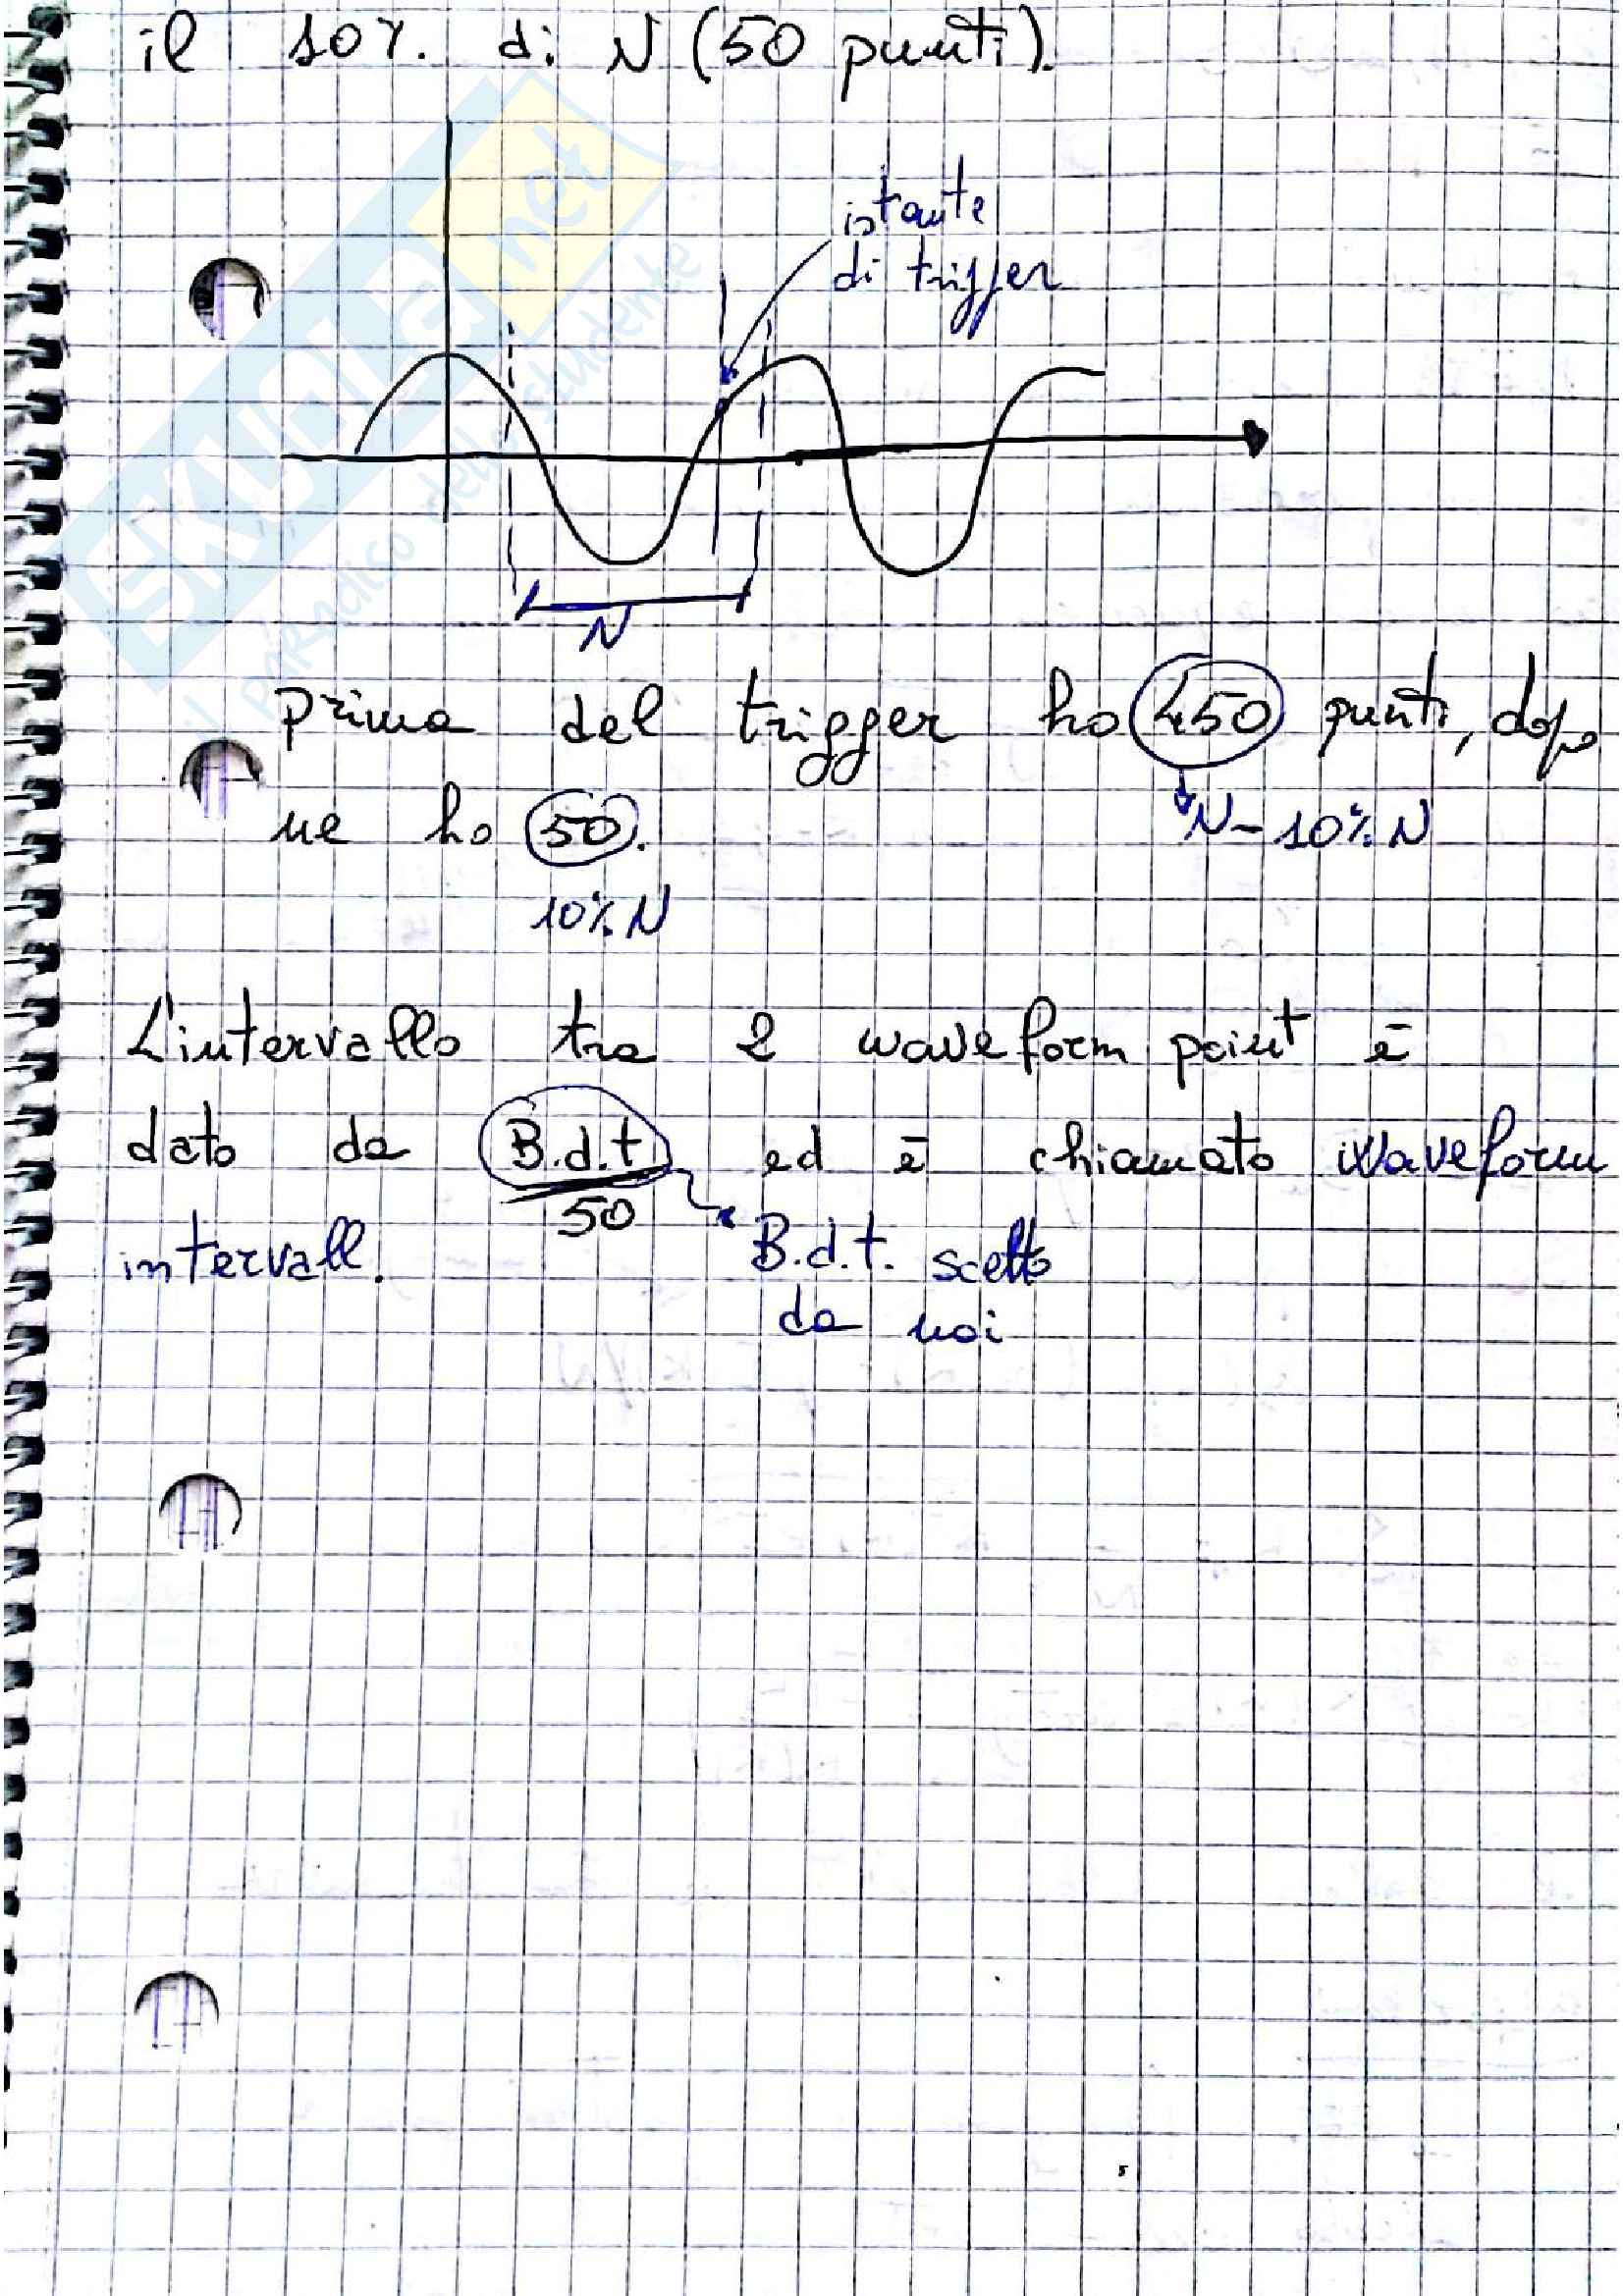 il 10%. di N (50 punti).
istante
di trigger
N
prima del trigger ho 450 punti, dopo
ne ho 50.
N-10% N
10% N
L'intervallo tra 2 waveform point è
dato da B.d.t/50 ed è chiamato waveform
intervall.
B.d.t. scelto
da noi
SKUOLA.net
il PARADISO dello studente
5